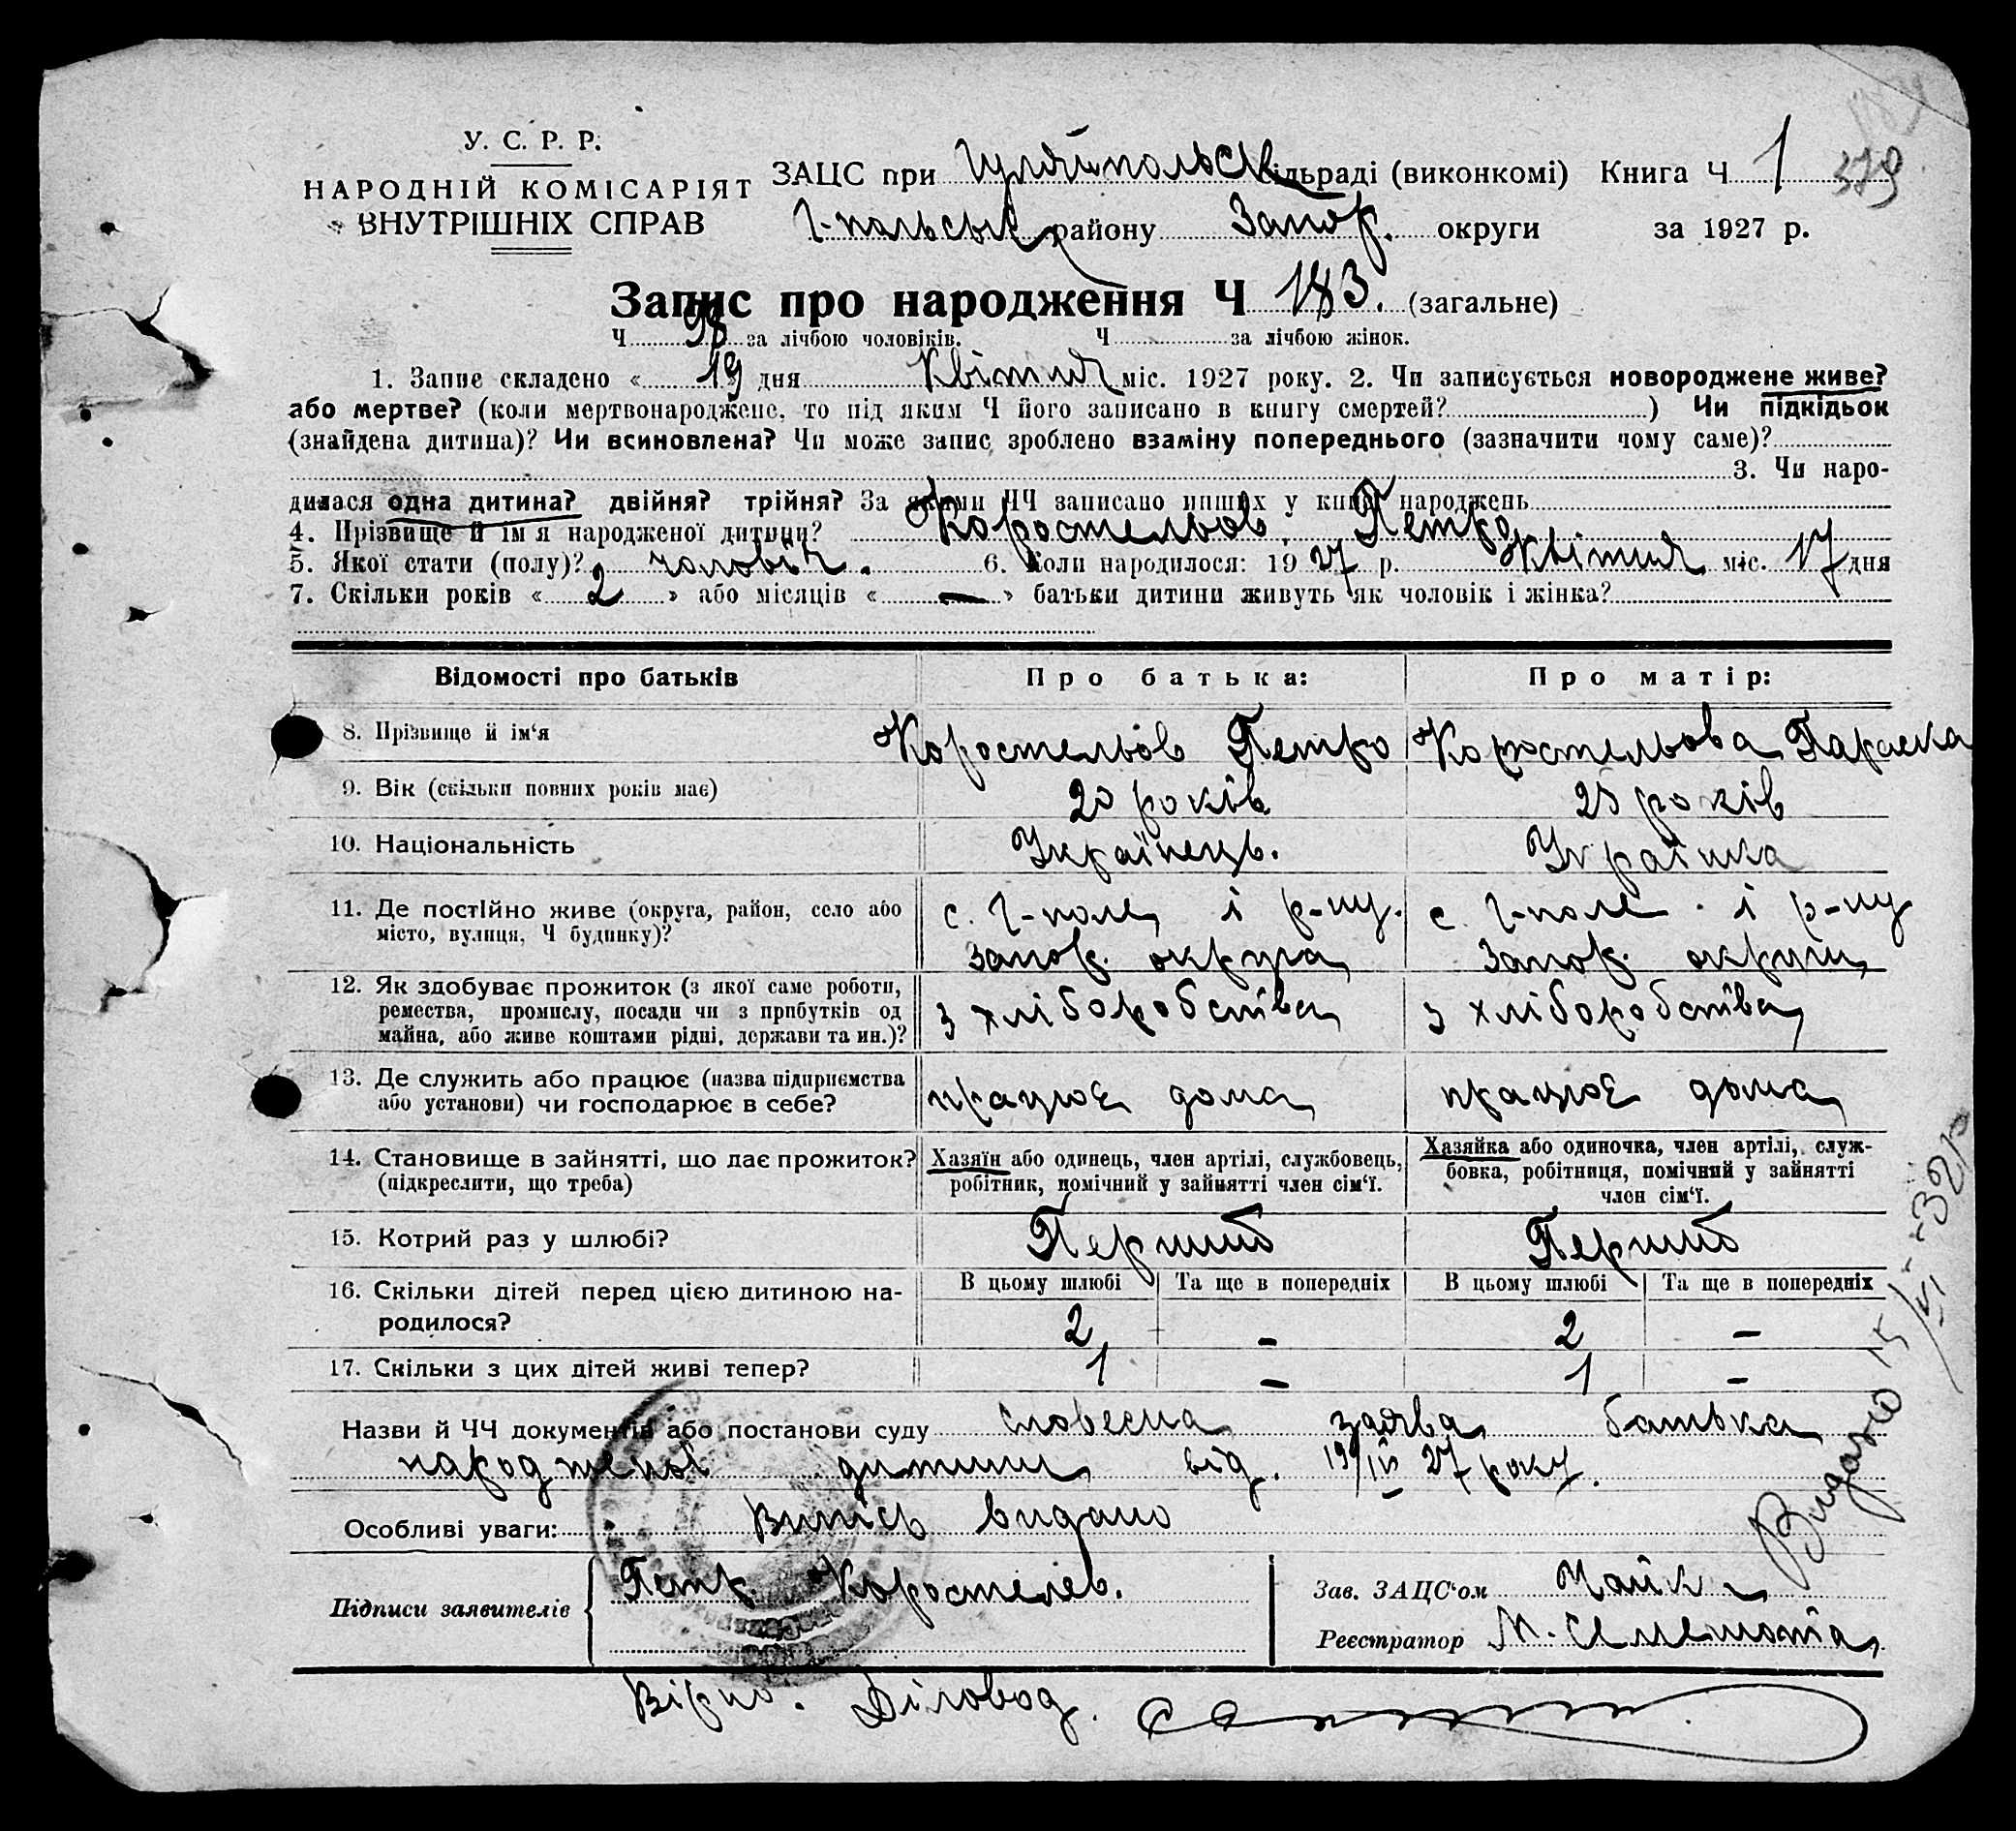 У. С. Р. Р.
НАРОДНІЙ КОМІСАРІЯТ
ВНУТРІШНІХ СПРАВ
ЗАЦС при Гуляйпольск сільраді (виконкомі) Книга Ч 1
379
Г-польськ району Запор. округи за 1927 р.
Запис про народження Ч 183. (загальне)
Ч 98 за лічбою чоловіків. Ч за лічбою жінок.
1. Запис складено « 19 дня Квітня міс. 1927 року. 2. Чи записується новороджене живе?
або мертве? (коли мертвонароджене, то під яким Ч його записано в книгу смертей? ) Чи підкідьок
(знайдена дитина)? Чи всиновлена? Чи може запис зроблено взаміну попереднього (зазначити чому саме)?
3. Чи наро-
дилася одна дитина? двійня? трійня? За якими ЧЧ записано инших у книзі народжень
4. Прізвище й ім'я народженої дитини? Коростельов Петро
5. Якої стати (полу)? чоловіч. 6. Коли народилося: 1927 р. Квітня міс. 17 дня
7. Скільки років « 2 » або місяців « — » батьки дитини живуть як чоловік і жінка?
Відомості про батьків Про батька: Про матір:
8. Прізвище й ім'я Коростельов Петро Коростельова Параска
9. Вік (скільки повних років має) років 25 років
10. Національність Українець. Українка
11. Де постійно живе (округа, район, село або с. Г-поле і р-ну. с. Г-поле і р-ну
місто, вулиця, Ч будинку)? Запор. округа Запор. округи
12. Як здобуває прожиток (з якої саме роботи,
ремества, промислу, посади чи з прибутків од з хліборобства з хліборобства
майна, або живе коштами рідні, держави та ин.)?
13. Де служить або працює (назва підприємства працює дома працює дома
або установи) чи господарює в себе?
14. Становище в зайнятті, що дає прожиток? Хазяїн або одинець, член артілі, службовець, Хазяйка або одиночка, член артілі, служ-
(підкреслити, що треба) робітник, помічний у зайнятті член сім'ї. бовка, робітниця, помічний у зайнятті
член сім'ї.
15. Котрий раз у шлюбі? Перший Перший
16. Скільки дітей перед цією дитиною на- В цьому шлюбі Та ще в попередніх В цьому шлюбі Та ще в попередніх
родилося? 2 - 2 -
17. Скільки з цих дітей живі тепер? 1 - 1 -
Назви й ЧЧ документів або постанови суду словесна заява батька
народженої дитини від. 19/IV 27 року.
Особливі уваги: Випісь видано
Підписи заявителів Петр Коростелев.
Зав. ЗАЦС'ом
Реєстратор М.
Вірно. Діловод.
Видано 15